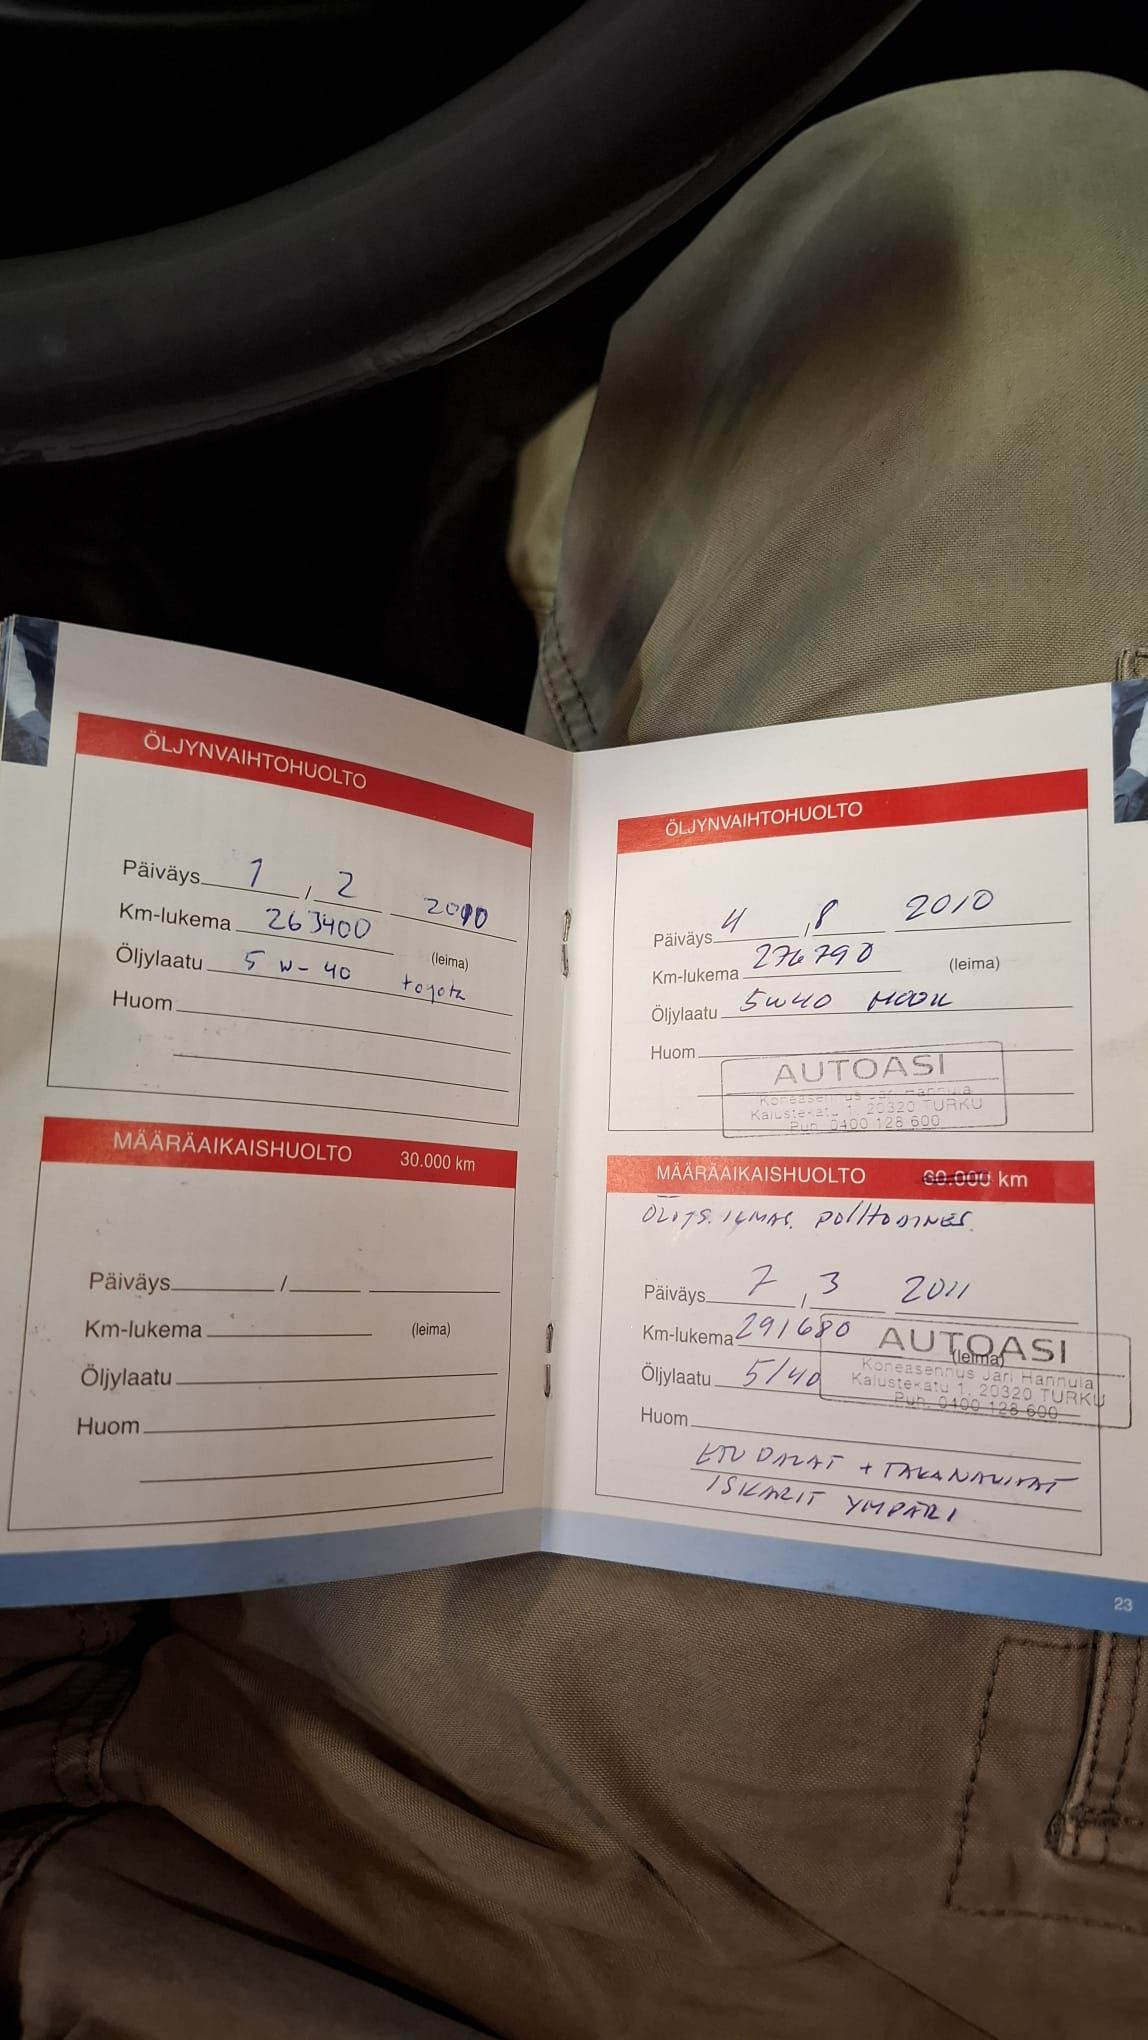 ÖLJYNVAIHTOHUOLTO
Päiväys 1 / 2 2010
Km-lukema 263400
(leima)
Öljylaatu 5 W-40 toyota
Huom
MÄÄRÄAIKAISHUOLTO 30.000 km
Päiväys /
Km-lukema (leima)
Öljylaatu
Huom
ÖLJYNVAIHTOHUOLTO
Päiväys 4 , 8 2010
Km-lukema 276790 (leima)
Öljylaatu 5W40
Huom
AUTOASI
Koneasennus Jari Hannula
Kalustekatu 1, 20320 TURKU
Puh. 0400 128 600
MÄÄRÄAIKAISHUOLTO 60.000 km
ÖLJYS. ILMAS. POLTTOAINES.
Päiväys 7 , 3 2011
Km-lukema 291680 (leima)
Öljylaatu 5/40
AUTOASI
Koneasennus Jari Hannula
Kalustekatu 1, 20320 TURKU
Puh. 0400 128 600
Huom
ETU PALAT + TAKANAUHAT
ISKARIT YMPÄRI
23